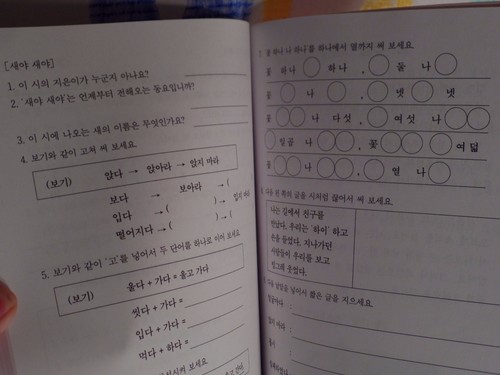 [새야 새야]
1. 이 시의 지은이가 누군지 아나요?
2. '새야 새야'는 언제부터 전해오는 동요입니까?
3. 이 시에 나오는 새의 이름은 무엇인가요?
4. 보기와 같이 고쳐 써 보세요.
(보기) 앉다 → 앉아라 → 앉지 마라
보다 → 보아라 → (
입다 → ( ) → 입지 마
떨어지다 → ( ) → (
5. 보기와 같이 '고'를 넣어서 두 단어를 하나로 이어 보세요
(보기) 울다 + 가다 = 울고 가다
씻다 + 가다 =
입다 + 가다 =
먹다 + 하다 =
보세요.
하나 나 하나를 하나에서 열까지 써 보세요.
하나 ○ 하나 , ○ 둘 나 ○
○ 나 ○ , ○ 넷 ○ 넷
○○ 나 다섯 , ○ 여섯 나 ○○
○ 일곱 나 ○○ , 꽃 ○○ 여덟
○○ 나 ○○ , ○ 열 나 ○
쪽의 글을 시처럼 끊어서 써 보세요.
나는 길에서 친구를
만났다. 우리는 '하이' 하고
손을 들었다. 지나가던
사람들이 우리를 보고
웃었다.
넣어서 짧은 글을 지으세요.